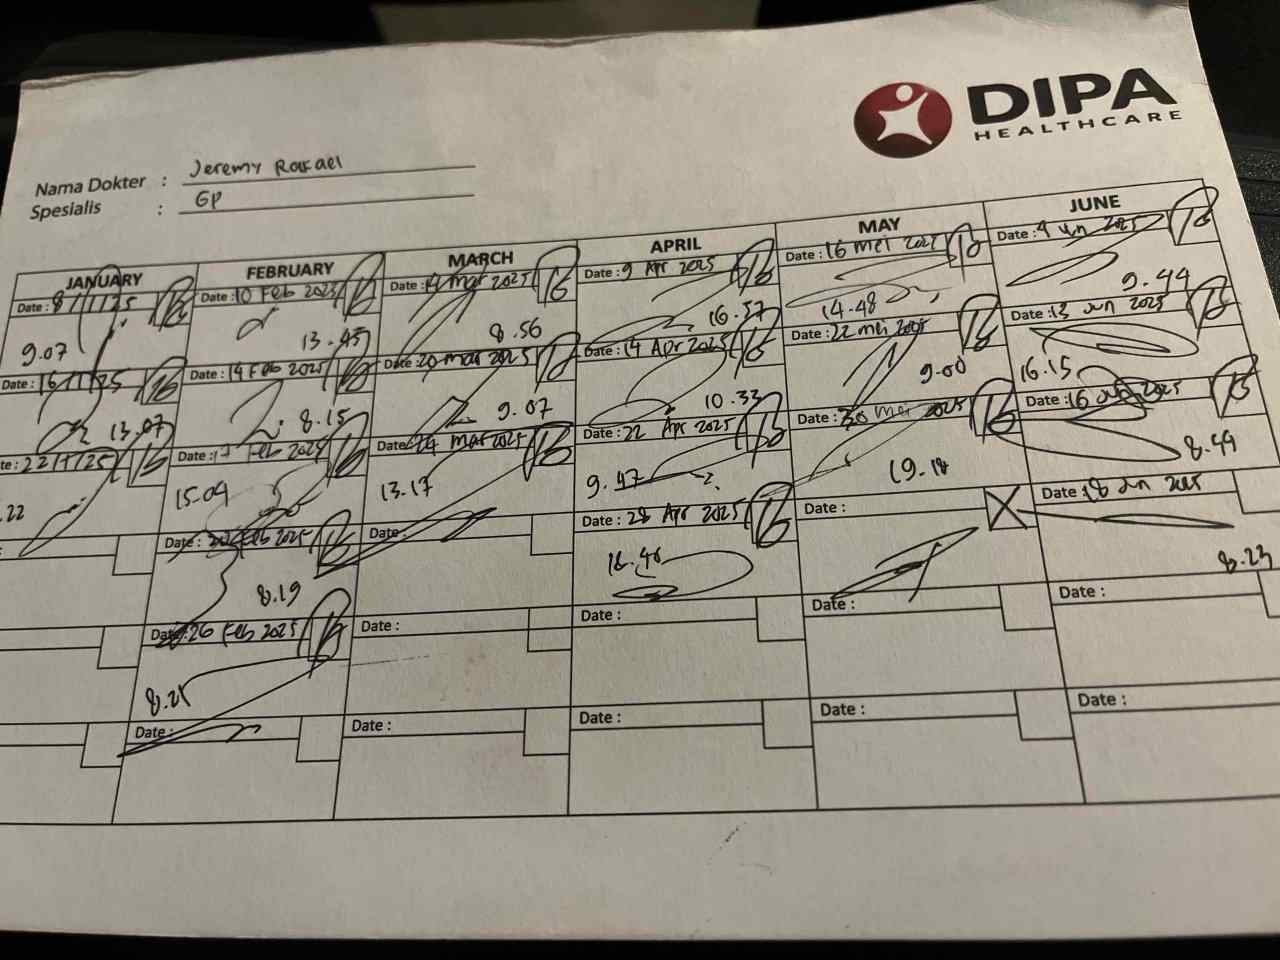 DIPA
HEALTHCARE
Nama Dokter : Jeremy Rafael
Spesialis : GP
JANUARY
Date : 8/1/25
9.07
Date : 16/1/25
13.07
te : 22/1/25
.22
FEBRUARY
Date : 10 Feb 2025
13.45
Date : 14 Feb 2025
8.15
Date : 17 Feb 2025
15.04
Date : 20 Feb 2025
8.19
Date : 26 Feb 2025
8.21
Date :
MARCH
Date : mar 2025
8.56
Date : 20 mar 2025
9.07
Date : 24 mar 2025
13.17
Date :
Date :
Date :
APRIL
Date : 9 Apr 2025
16.57
Date : 14 Apr 2025
10.33
Date : 22 Apr 2025
9.47
Date : 28 Apr 2025
Date :
Date :
MAY
Date : 16 mei 2025
14.48
Date : 22 mei 2025
9.00
Date : 30 mei 2025
19.18
Date :
Date :
Date :
JUNE
Date : 4 Jun 2025
9.44
Date : 13 Jun 2025
16.15
Date : 16 Jun 2025
8.44
Date : 18 Jun 2025
8.23
Date :
Date :